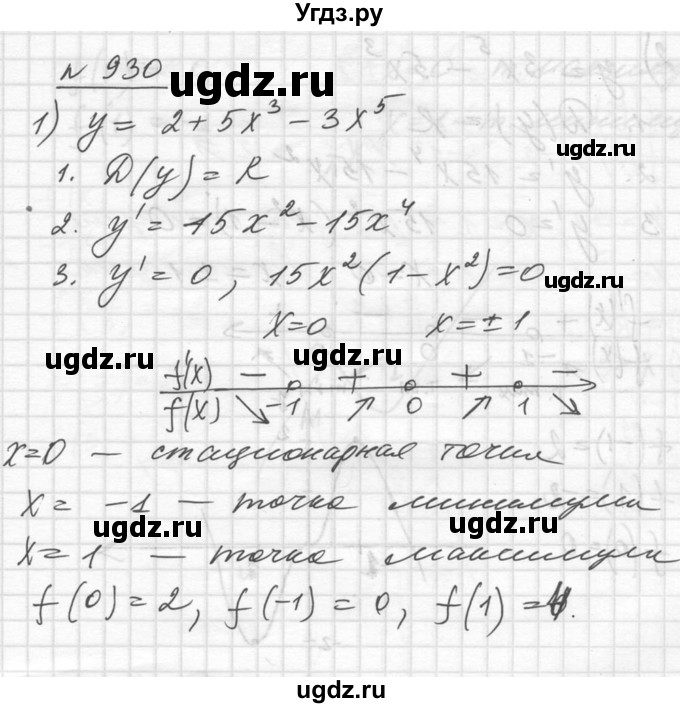 Угдз.ру
№ 930
ugdz.ru
1) y = 2 + 5x³ − 3x⁵
ugdz.ru
1. D(y) = R
2. y' = 15x² − 15x⁴
3. y' = 0, 15x²(1 − x²) = 0
ugdz.ru
x = 0 x = ± 1
ugdz.ru ugdz.ru
f'(x) − + + −
f(x) ↘ −1 ↗ 0 ↗ 1 ↘
x=0 — стационарная точка
x = −1 — точка минимума
ugdz.ru ugdz.ru
x = 1 — точка максимума
f(0) = 2, f(−1) = 0, f(1) = 4.
ugdz.ru
ugdz.ru